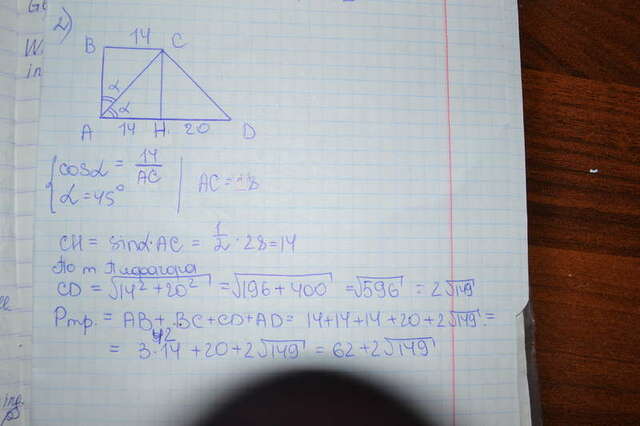 2)
14
B C
α
α
A 14 H 20 D
cosα = 14/AC
α = 45°
AC = 28
CH = sinα·AC = 1/2 · 28 = 14
По т Пифагора
CD = √14² + 20² = √196 + 400 = √596 = 2√149
Pтр. = AB + BC + CD + AD = 14+14+14+20+2√149 =
42
= 3·14 + 20 + 2√149 = 62 + 2√149